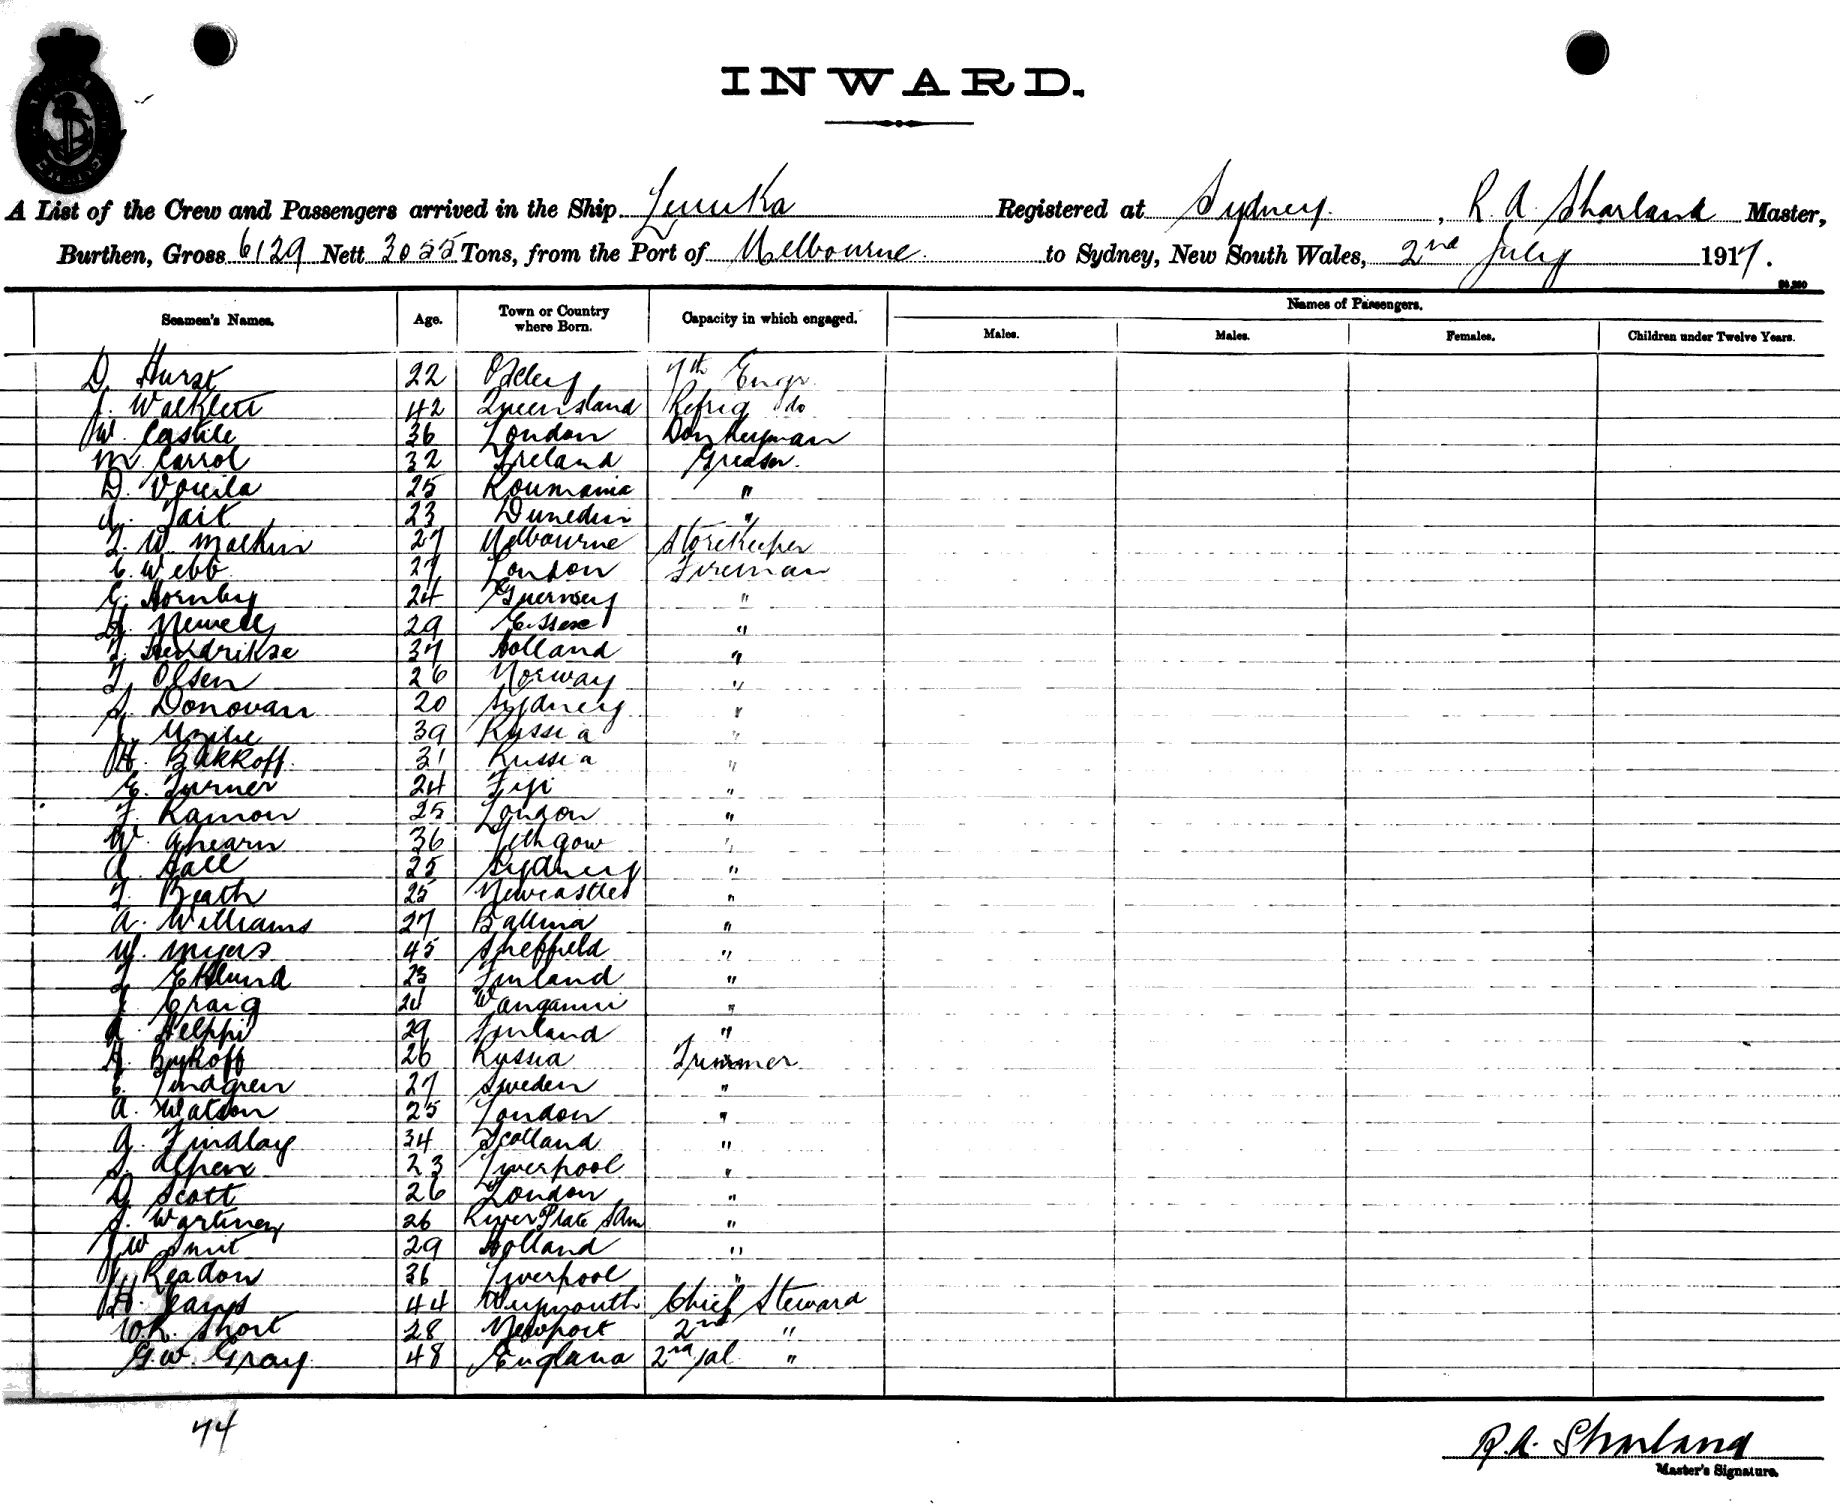 INWARD.
A List of the Crew and Passengers arrived in the Ship Levuka Registered at Sydney. , R. A. Sharland Master,
Burthen, Gross 6129 Nett 3055 Tons, from the Port of Melbourne. to Sydney, New South Wales, 2nd July 1917.
Seamen's Names. Age. Town or Country where Born. Capacity in which engaged. Names of Passengers.
Males. Males. Females. Children under Twelve Years.
D. Hurst 22 7th Engr.
J. 42 Queensland Refrig do
W. Castile 36 London Donkeyman
M. Carrol 32 Ireland Greaser.
D. 25 Roumania "
Tait 23 Dunedin "
W. Malkin 27 Melbourne Storekeeper
C. Webb 27 London Fireman
G. Hornby 24 Guernsey "
H. Newell 29 Essex "
Hendrikse 37 Holland "
Olsen 26 Norway "
Donovan 20 Sydney "
39 Russia "
H. Bakkoff. 31 Russia "
E. Turner 24 Fiji "
F. Ramon 25 London "
W. Ahearn 36 Lithgow "
A. Hall 25 Sydney "
Beath 25 Newcastle "
A. Williams 27 Ballina "
W. Myers 45 Sheffield "
Eklund 23 Finland "
J. Craig 24 Wanganui "
A. Helppi 29 Finland "
Bykoff 26 Russia Trimmer
C. Lindgren 27 Sweden "
A. Watson 25 London "
G. Findlay 34 Scotland "
S. Alpen 23 Liverpool "
D. Scott 26 London "
J. 26 River Plate S Am "
J W Smit 29 Holland "
J. Readon 36 Liverpool "
H. 44 Weymouth Chief Steward
W.R. Short 28 Newport 2nd "
G.W. Gray. 48 England 2nd Sal "
44
R.A. Sharland
Master's Signature.